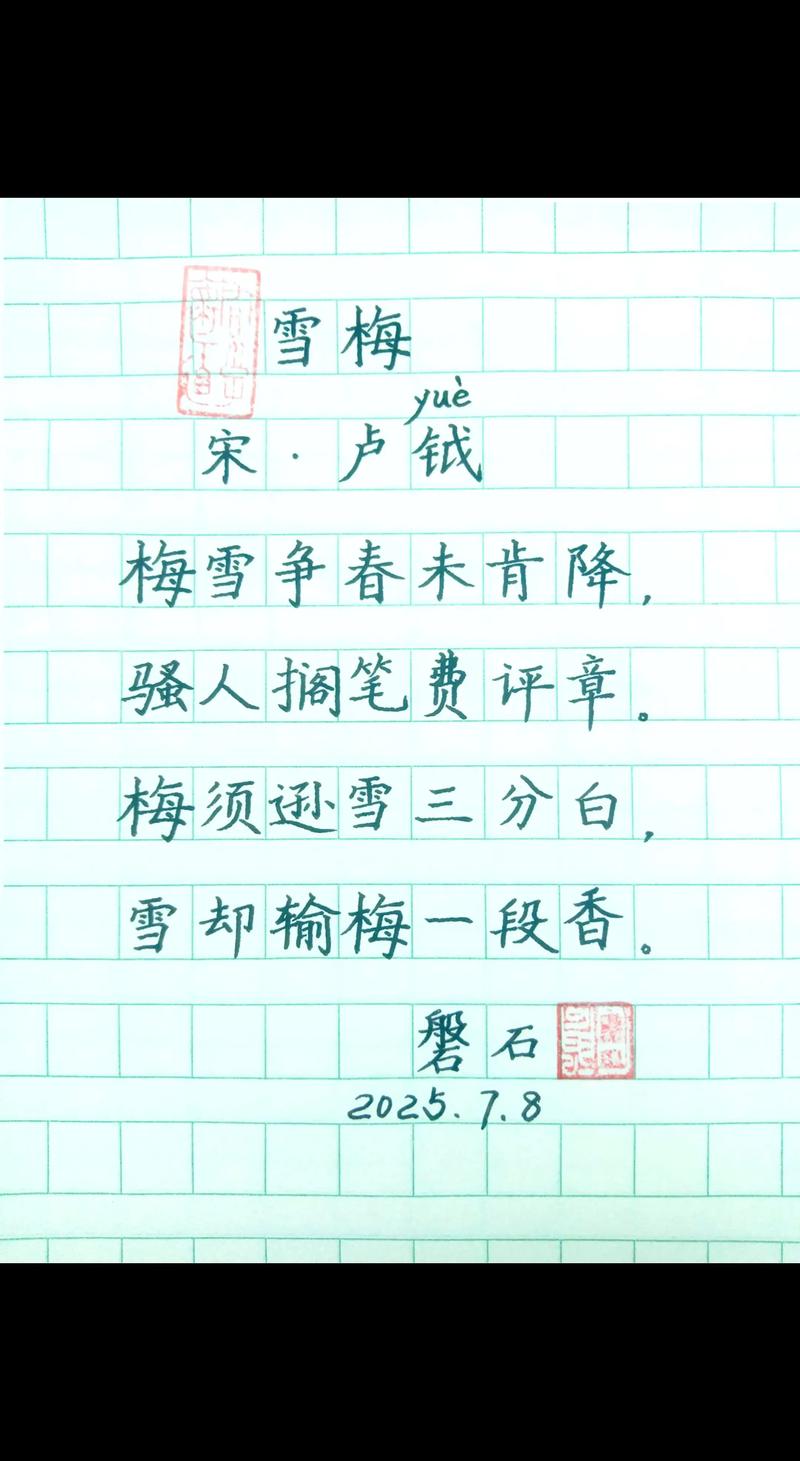 雪梅
yuè
宋·卢钺
梅雪争春未肯降，
骚人搁笔费评章。
梅须逊雪三分白，
雪却输梅一段香。
磐石
2025.7.8